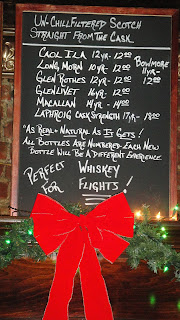 UN-CHILLFILTERED SCOTCH
STRAIGHT FROM THE CASK
CAOL ILA 12YR- 12.00
LONG MORN 10YR- 12.00
GLEN ROTHES 12YR- 12.00
GLENLIVET 16YR- 12.00
MACALLAN 14YR- 14.00
LAPHROIG CASK STRENGTH 17YR- 18.00
BOWMORE
11YR-
12.00
"AS REAL & NATURAL AS IT GETS!
ALL BOTTLES ARE NUMBERED EACH NEW
BOTTLE WILL BE A DIFFERENT EXPERIENCE
PERFECT
FOR
WHISKEY
FLIGHTS!